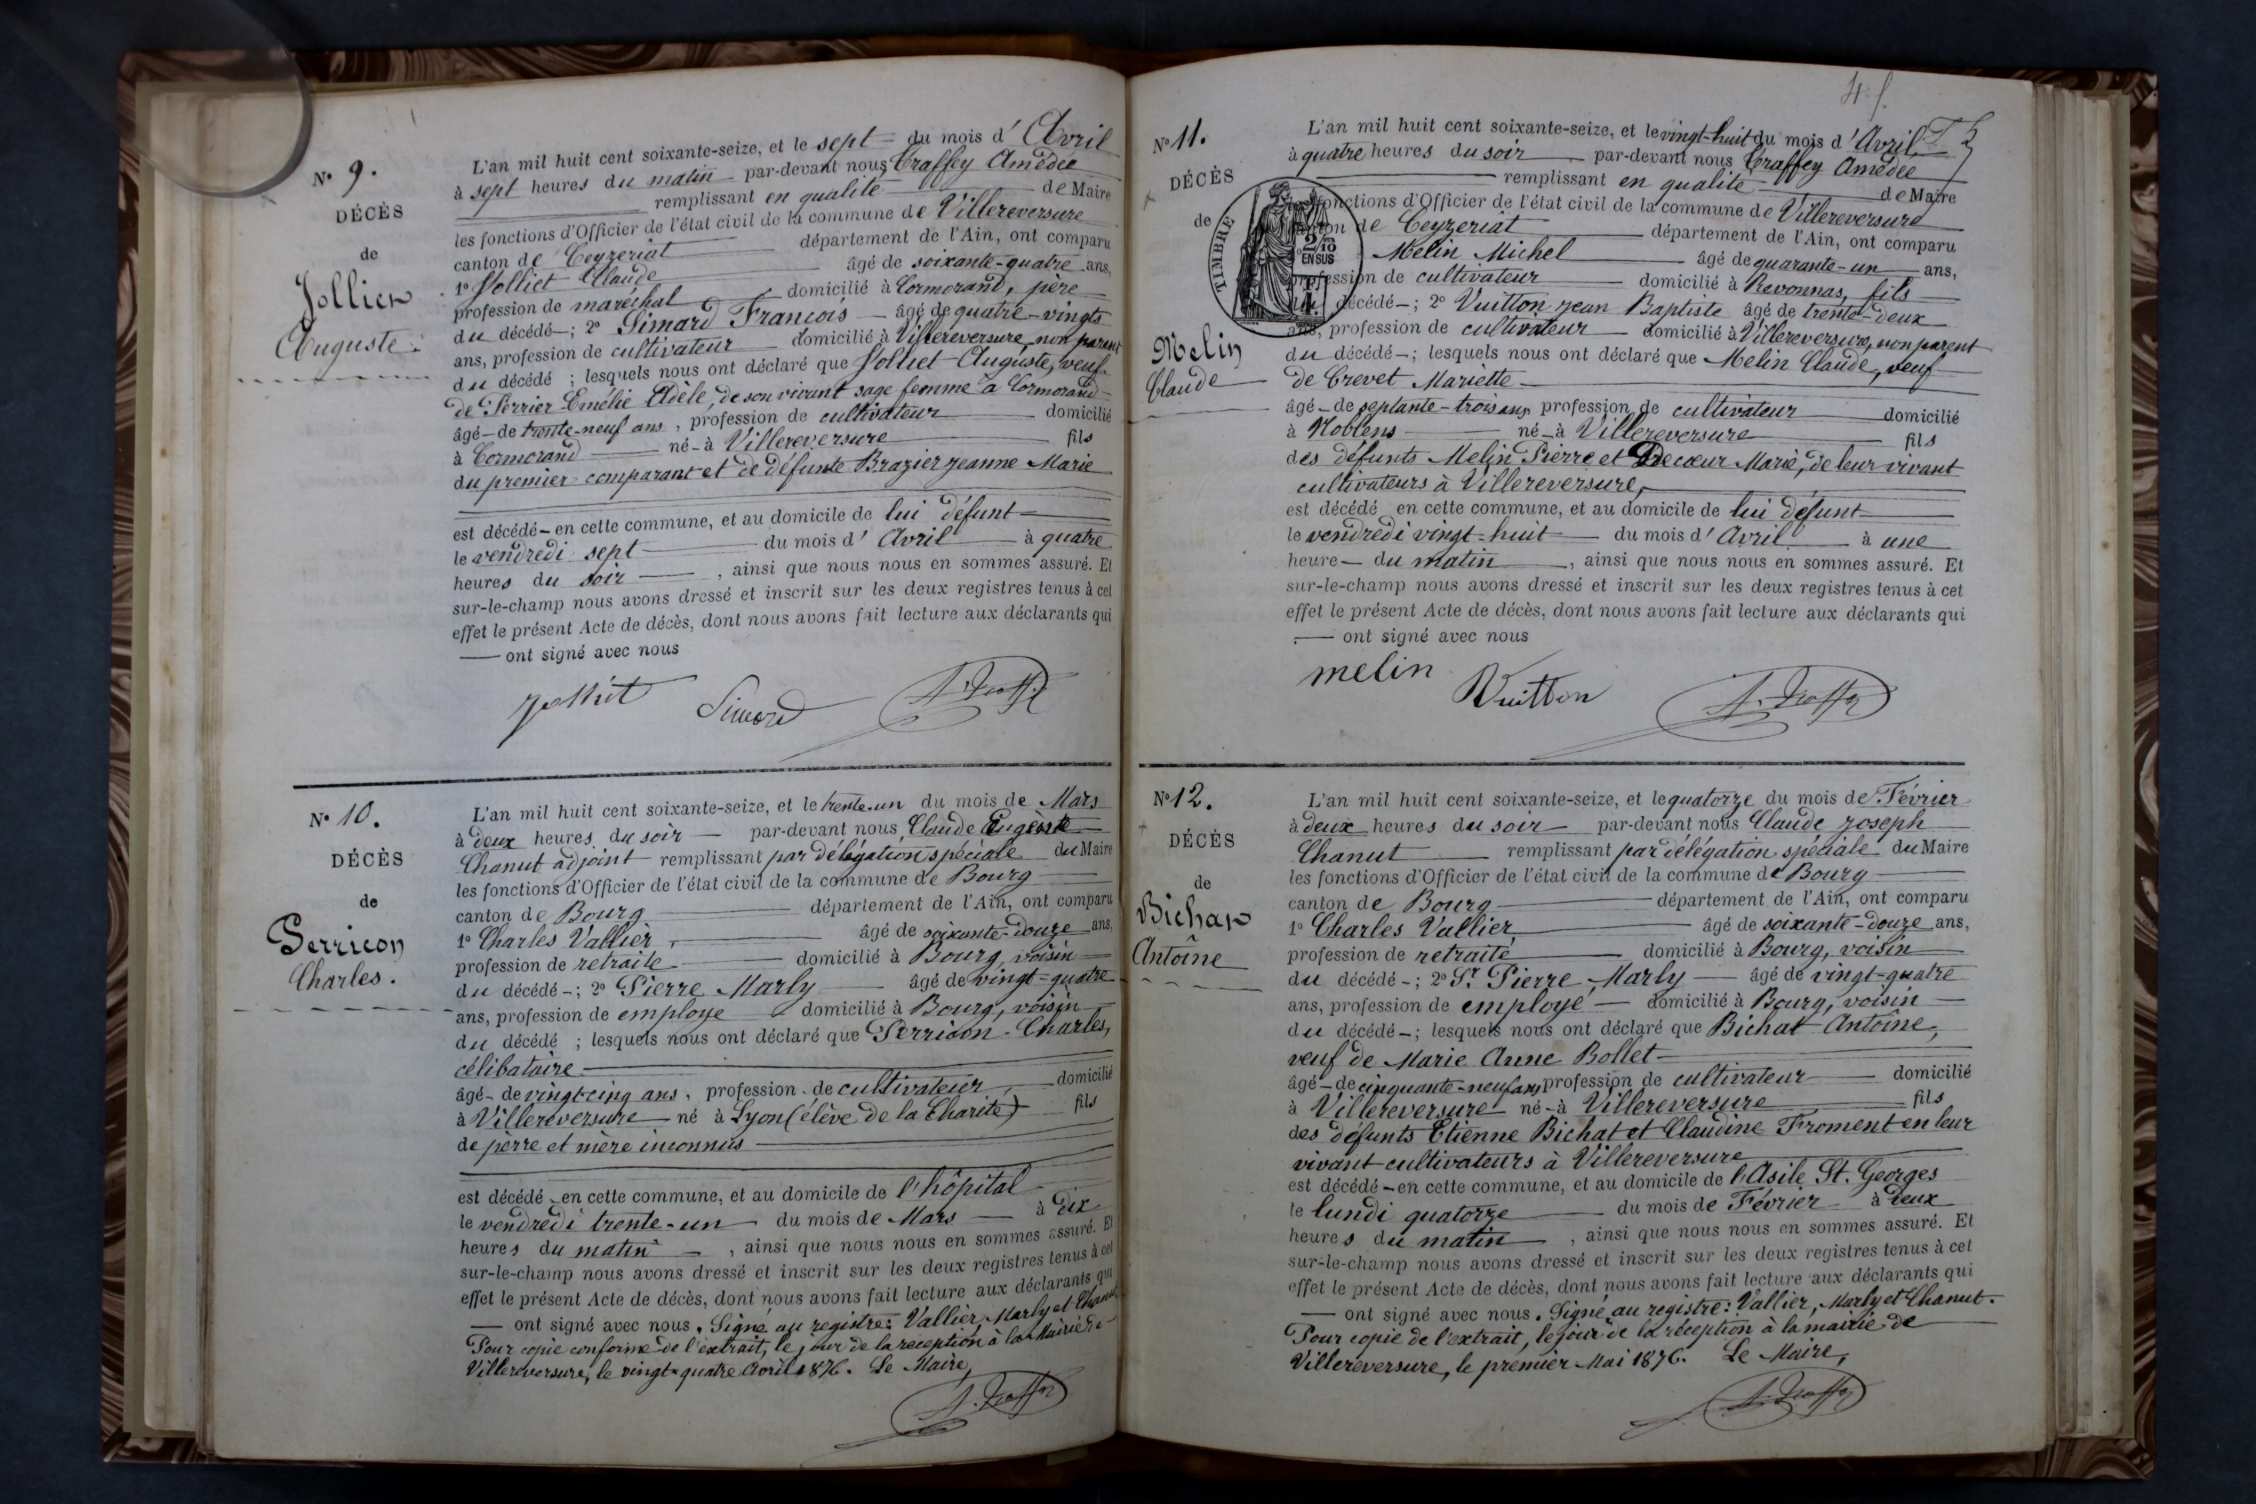 N° 9.
DÉCÈS
de
Jolliet
Auguste.
L'an mil huit cent soixante-seize, et le sept du mois d'Avril
à sept heures du matin par-devant nous Traffey Amédée
remplissant en qualité de Maire
les fonctions d'Officier de l'état civil de la commune de Villereversure
canton de Ceyzeriat département de l'Ain, ont comparu
1° Jolliet Claude âgé de soixante-quatre ans,
profession de maréchal domicilié à Cormorand, père
du décédé ; 2° Simard François âgé de quatre-vingts
ans, profession de cultivateur domicilié à Villereversure, non parent
du décédé ; lesquels nous ont déclaré que Jolliet Auguste, veuf
de Perrier Emélie Adèle, de son vivant sage femme à Cormorand
âgé de trente-neuf ans, profession de cultivateur domicilié
à Cormorand né à Villereversure fils
du premier comparant et de défunte Brazier Jeanne Marie
est décédé en cette commune, et au domicile de lui défunt
le vendredi sept du mois d'Avril à quatre
heures du soir, ainsi que nous nous en sommes assuré. Et
sur-le-champ nous avons dressé et inscrit sur les deux registres tenus à cet
effet le présent Acte de décès, dont nous avons fait lecture aux déclarants qui
ont signé avec nous
Jolliet Simard A. Traffey
N° 10.
DÉCÈS
de
Perricon
Charles.
L'an mil huit cent soixante-seize, et le trente-un du mois de Mars
à deux heures du soir par-devant nous Claude
Chanut adjoint remplissant par délégation spéciale du Maire
les fonctions d'Officier de l'état civil de la commune de Bourg
canton de Bourg département de l'Ain, ont comparu
1° Charles Vallier, âgé de soixante-douze ans,
profession de retraite domicilié à Bourg, voisin
du décédé ; 2° Pierre Marly âgé de vingt-quatre
ans, profession de employe domicilié à Bourg, voisin
du décédé ; lesquels nous ont déclaré que Perricon Charles,
célibataire
âgé de vingt-cinq ans, profession de cultivateur, domicilié
à Villereversure né à Lyon (élève de la Charité) fils
de pèrre et mère inconnus
est décédé en cette commune, et au domicile de l'hôpital
le vendredi trente-un du mois de Mars à dix
heures du matin, ainsi que nous nous en sommes assuré. Et
sur-le-champ nous avons dressé et inscrit sur les deux registres tenus à cet
effet le présent Acte de décès, dont nous avons fait lecture aux déclarants qui
ont signé avec nous. Signé au registre: Vallier, Marly et Chanut
Pour copie conforme de l'extrait, le jour de la réception à la Mairie de
Villereversure, le vingt-quatre Avril 1876. Le Maire,
A. Traffey
N° 11.
DÉCÈS
de
TIMBRE
2/10
EN SUS
Melin
Claude
L'an mil huit cent soixante-seize, et le vingt-huit du mois d'Avril
à quatre heures du soir par-devant nous Traffey Amédée
remplissant en qualité de Maire
fonctions d'Officier de l'état civil de la commune de Villereversure
canton de Ceyzeriat département de l'Ain, ont comparu
Melin Michel âgé de quarante-un ans,
profession de cultivateur domicilié à Revonnas, fils
du décédé ; 2° Vuitton Jean Baptiste âgé de trente-deux
ans, profession de cultivateur domicilié à Villereversure, non parent
du décédé ; lesquels nous ont déclaré que Melin Claude, veuf
de Crevet Mariette
âgé de septante-trois ans, profession de cultivateur domicilié
à Noblens né à Villereversure fils
des défunts Melin Pierre et Decœur Marie, de leur vivant
cultivateurs à Villereversure,
est décédé en cette commune, et au domicile de lui défunt
le vendredi vingt-huit du mois d'Avril à une
heure du matin, ainsi que nous nous en sommes assuré. Et
sur-le-champ nous avons dressé et inscrit sur les deux registres tenus à cet
effet le présent Acte de décès, dont nous avons fait lecture aux déclarants qui
ont signé avec nous
melin Vuitton A. Traffey
N° 12.
DÉCÈS
de
Bichat
Antoîne
L'an mil huit cent soixante-seize, et le quatorze du mois de Février
à deux heures du soir par-devant nous Claude Joseph
Chanut remplissant par délégation spéciale du Maire
les fonctions d'Officier de l'état civil de la commune de Bourg
canton de Bourg département de l'Ain, ont comparu
1° Charles Vallier âgé de soixante-douze ans,
profession de retraité domicilié à Bourg, voisin
du décédé ; 2° Sr. Pierre Marly âgé de vingt-quatre
ans, profession de employé domicilié à Bourg, voisin
du décédé ; lesquels nous ont déclaré que Bichat Antoîne,
veuf de Marie Anne Bollet
âgé de cinquante-neuf ans, profession de cultivateur domicilié
à Villereversure né à Villereversure fils
des défunts Etienne Bichat et Claudine Froment en leur
vivant cultivateurs à Villereversure
est décédé en cette commune, et au domicile de l'Asile St. Georges
le lundi quatorze du mois de Février à deux
heures du matin, ainsi que nous nous en sommes assuré. Et
sur-le-champ nous avons dressé et inscrit sur les deux registres tenus à cet
effet le présent Acte de décès, dont nous avons fait lecture aux déclarants qui
ont signé avec nous. Signé au registre: Vallier, Marly et Chanut.
Pour copie de l'extrait, le jour de la réception à la mairie de
Villereversure, le premier Mai 1876. Le Maire,
A. Traffey